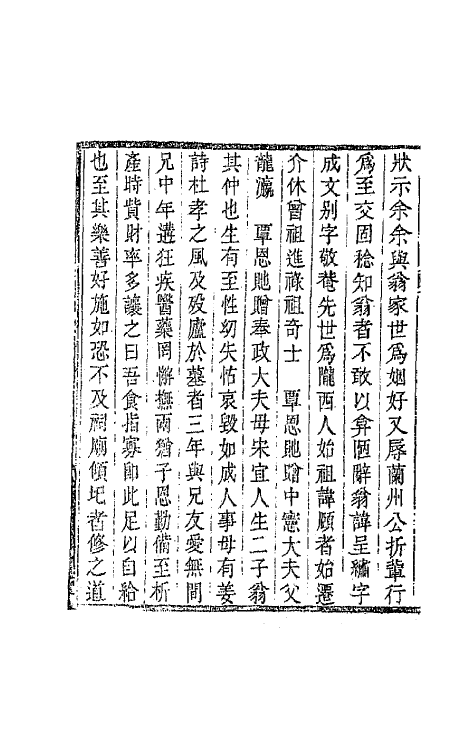 狀示余余與翁家世爲姻好又辱蘭州公折輩行
爲至交固稔知翁者不敢以弇陋辭翁諱呈繡字
成文别字敬菴先世爲隴西人始祖諱願者始遷
介休曾祖進祿祖奇士　覃恩貤贈中憲大夫父
龍瀛　覃恩貤贈奉政大夫母宋宜人生二子翁
其仲也生有至性幼失怙哀毀如成人事母有姜
詩杜孝之風及殁廬於墓者三年與兄友愛無間
兄中年遘狂疾醫藥罔懈撫兩猶子恩勤備至析
產時貲財率多讓之曰吾食指寡卽此足以自給
也至其樂善好施如恐不及祠廟傾圮者修之道